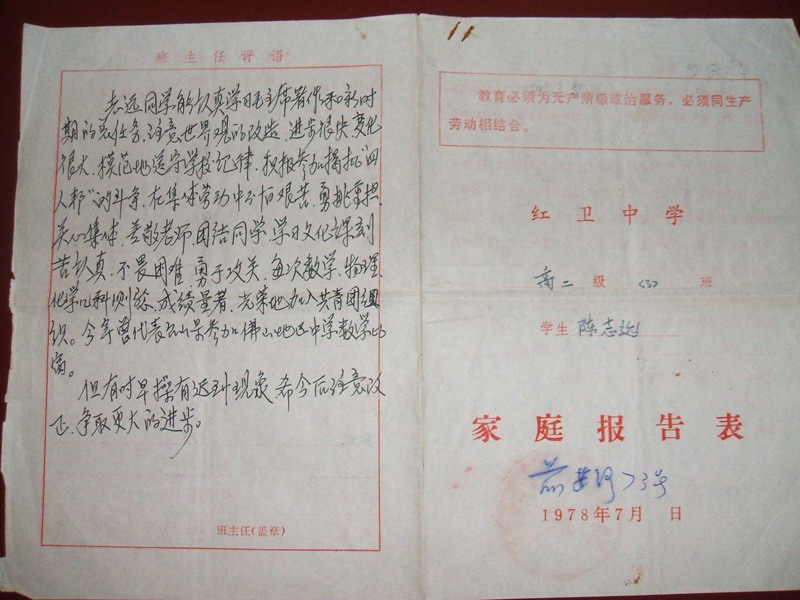 班主任评语
志远同学能认真学习毛主席著作和新时
期的总任务,注意世界观的改造,进步很快变化
很大,模范地遵守学校记律,积极参加揭批“四
人邦”的斗争,在集体劳动中不怕艰苦,勇挑重担,
关心集体,尊敬老师,团结同学,学习文化课刻
苦认真,不畏困难,勇于攻关,每次数学、物理、
化学几科测验,成绩显著,光荣地加入共青团组
织。今年曾代表石山京参加佛山地区中学数学比
赛。
但有时早操有迟到现象,希今后注意改
正,争取更大的进步。
班主任(盖章)
教育必须为无产阶级政治服务,必须同生产
劳动相结合。
红卫中学
高二 级 (3) 班
学生 陈志远
家庭报告表
前进路 号
1978年7月 日